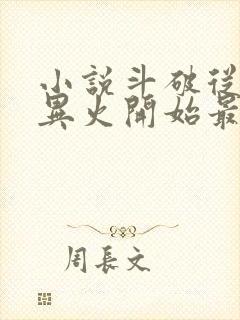 小説斗破從
異火開始最
周長文